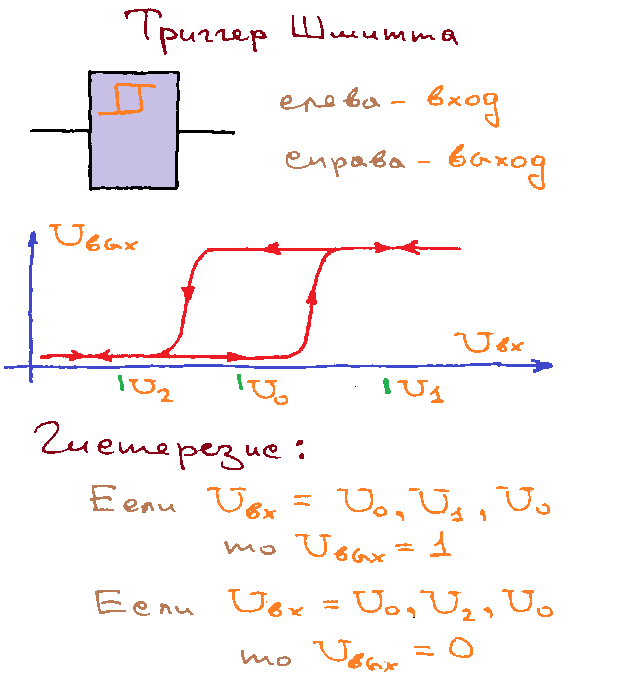 Триггер Шмитта
слева - вход
справа - выход
Uвых
Uвх
U2 U0 U1
Гистерезис:
Если Uвх = U0, U1, U0
то Uвых = 1
Если Uвх = U0, U2, U0
то Uвых = 0